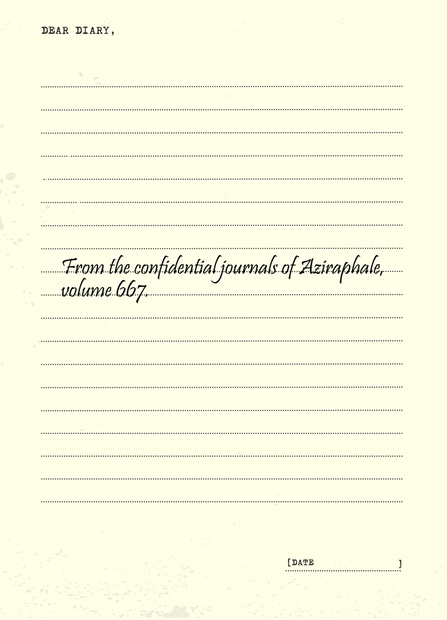 DEAR DIARY,
From the confidential journals of Aziraphale,
volume 667.
[DATE ]